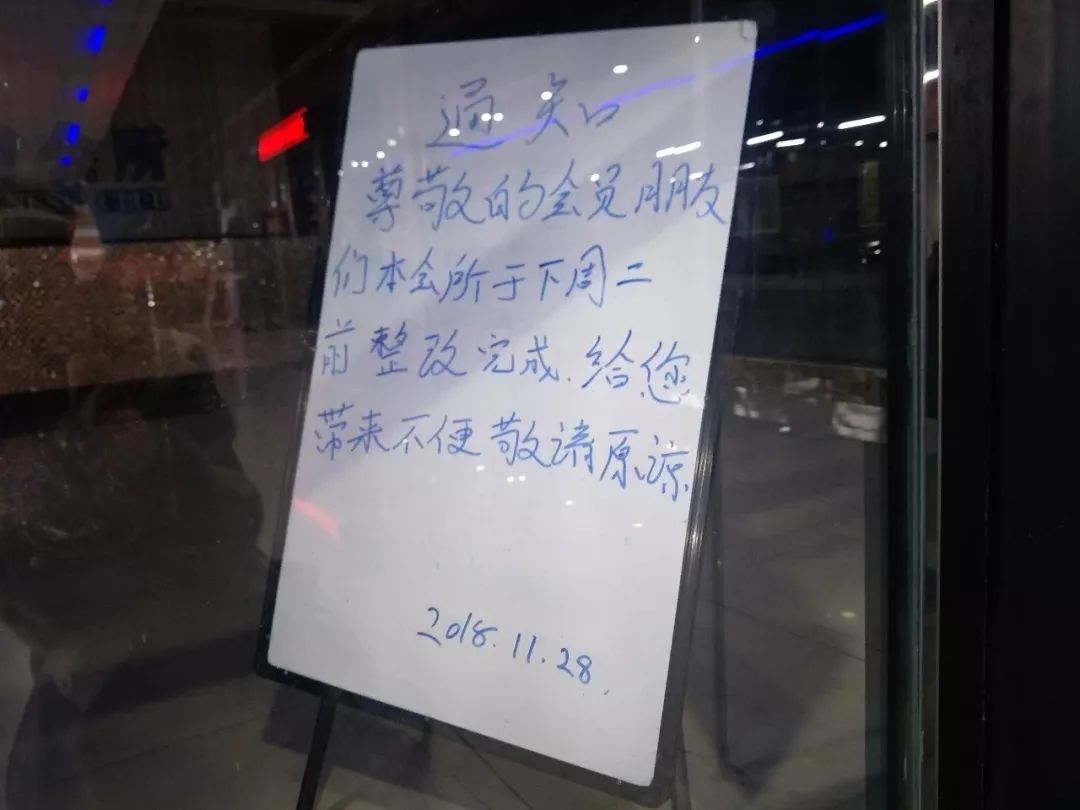 通知
尊敬的会员朋友
们本会所于下周二
前整改完成.给您
带来不便敬请原谅.
2018.11.28.